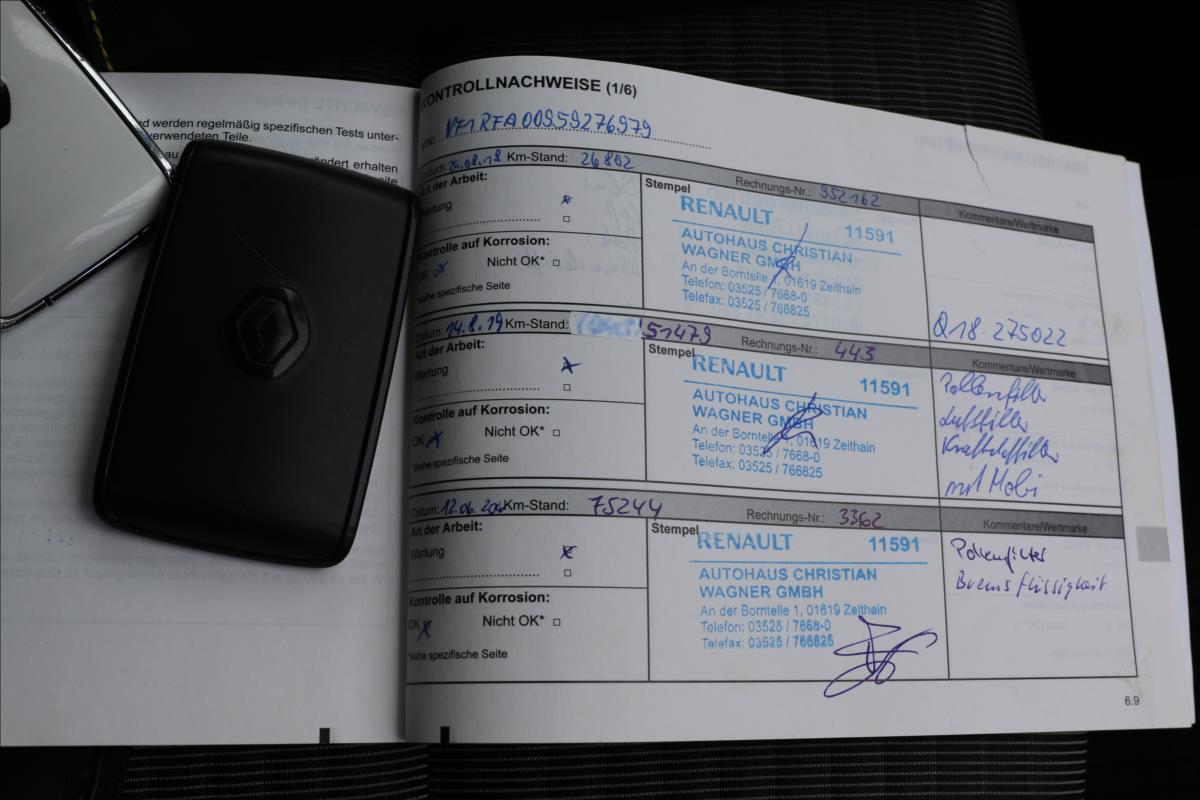 nd werden regelmäßig spezifischen Tests unter-
verwendeten Teile.
ändert erhalten
KONTROLLNACHWEISE (1/6)
VIN: VF1RFA00959276979
Datum: 20.08.18 Km-Stand: 26802 Rechnungs-Nr.: 952162
Art der Arbeit:
Wartung
Kontrolle auf Korrosion:
OK Nicht OK*
*siehe spezifische Seite
Stempel
RENAULT 11591
AUTOHAUS CHRISTIAN
WAGNER GMBH
An der Borntelle 1, 01619 Zeithain
Telefon: 03525 / 7668-0
Telefax: 03525 / 766825
Kommentare/Wertmarke
Q18.275022
Datum: 14.8.19 Km-Stand: 51479 Rechnungs-Nr.: 443
Art der Arbeit:
Wartung
Kontrolle auf Korrosion:
OK Nicht OK*
*siehe spezifische Seite
Stempel
RENAULT 11591
AUTOHAUS CHRISTIAN
WAGNER GMBH
An der Borntelle 1, 01619 Zeithain
Telefon: 03525 / 7668-0
Telefax: 03525 / 766825
Kommentare/Wertmarke
Pollenfilter
Luftfilter
Kraftstoffilter
mit Mobi
Datum: 12.06. Km-Stand: 75244 Rechnungs-Nr.: 3362
Art der Arbeit:
Wartung
Kontrolle auf Korrosion:
OK Nicht OK*
*siehe spezifische Seite
Stempel
RENAULT 11591
AUTOHAUS CHRISTIAN
WAGNER GMBH
An der Borntelle 1, 01619 Zeithain
Telefon: 03525 / 7668-0
Telefax: 03525 / 766825
Kommentare/Wertmarke
Pollenfilter
Bremsflüssigkeit
6.9